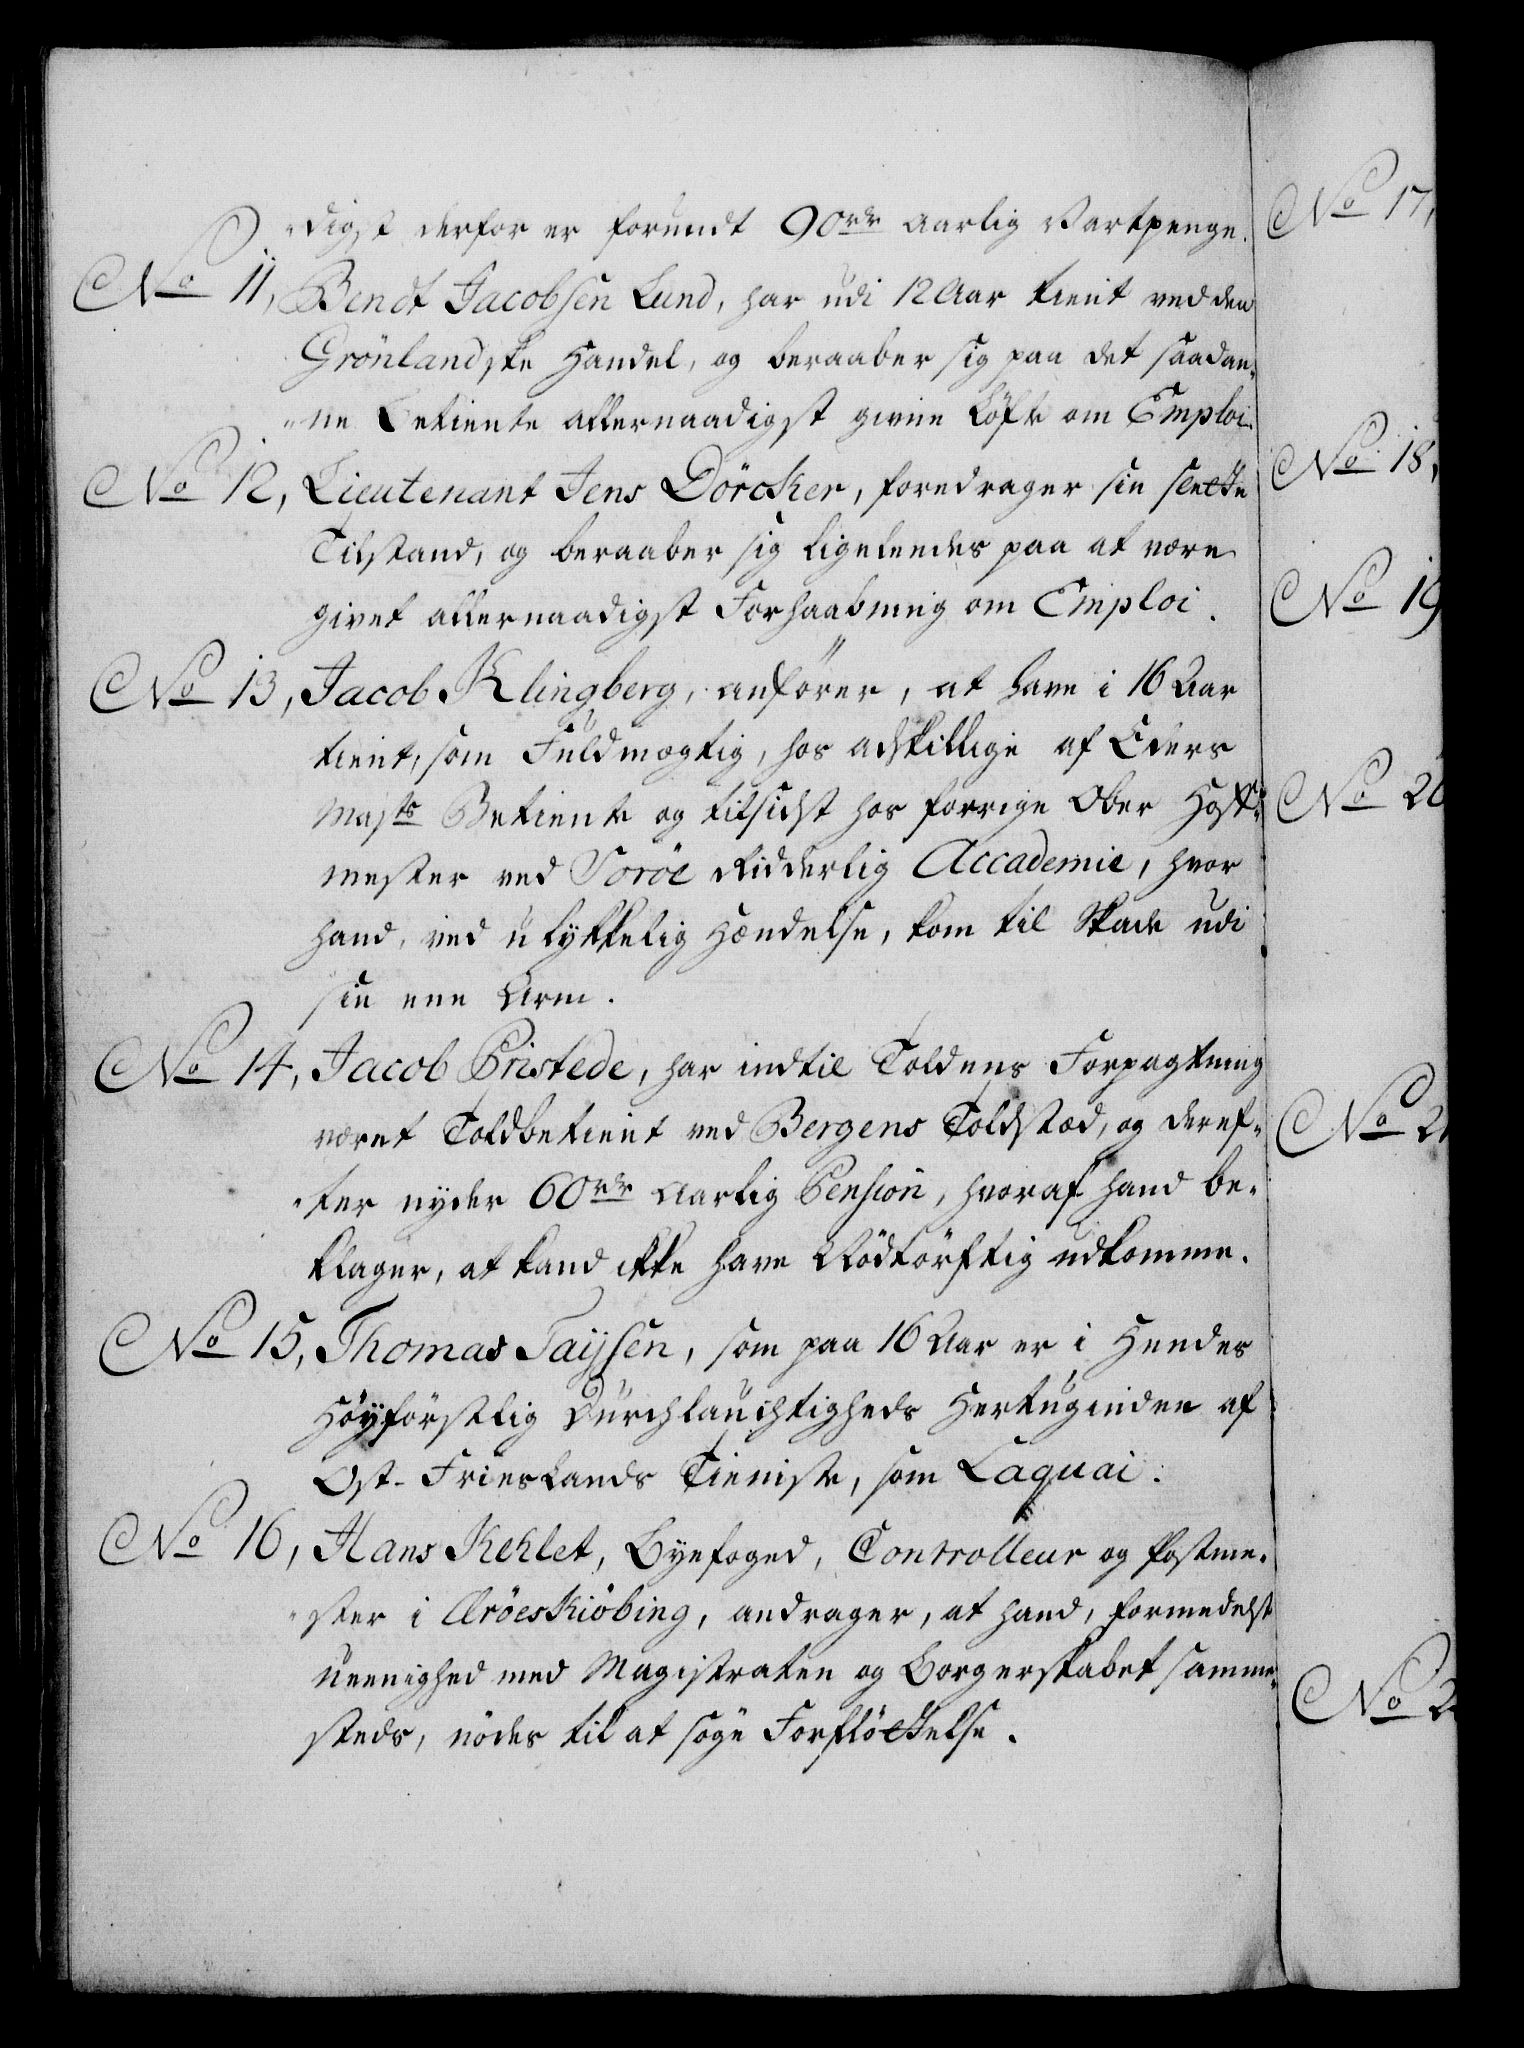 "digst derfor er forundt 90rdr aarlig Vartpenge.
No 11, Bendt Jacobsen Lund, har udi 12 Aar tient ved den
Grönlandske Handel, og beraaber sig paa det saadan-
"ne Betiente allernaadigst givne Löfte om Emploi.
No 12, Lieutenant Jens Dörcker, foredrager sin slette
Tilstand, og beraaber sig ligeledes paa at være
givet allernaadigst Forhaabning om Emploi.
No 13, Jacob Klingberg, anförer, at have i 16 Aar
tient, som Fuldmægtig, hos adskillige af Eders
Majts Betiente og tilsidst hos forrige Ober Hof-
mester ved Soröe Ridderlig Accademie, hvor
hand, ved ulykkelig Hændelse, kom til Skade udi
sin ene Arm.
No 14, Jacob Pristede, har indtil Toldens Forpagtning
været Toldbetient ved Bergens Toldstæd, og deref-
"ter nyder 60rdr aarlig Pension, hvoraf hand be-
klager, at kand ikke have Nödtörftig udkomme.
No 15, Thomas Taysen, som paa 16 Aar er i Hendes
Höyförstlig Durchlauchtigheds Hertuginden af
Ost-Frieslands Tieniste, som Laquai.
No 16, Hans Kehlet, Byefoged, Controlleur og Postme-
"ster i Æröeskiöbing, andrager, at hand, formedelst
Ueenighed med Magistraten og Borgerskabet samme-
steds, nödes til at söge Forflöttelse.
No 17,
No 18,
No 19
No 20
No 21
No 2